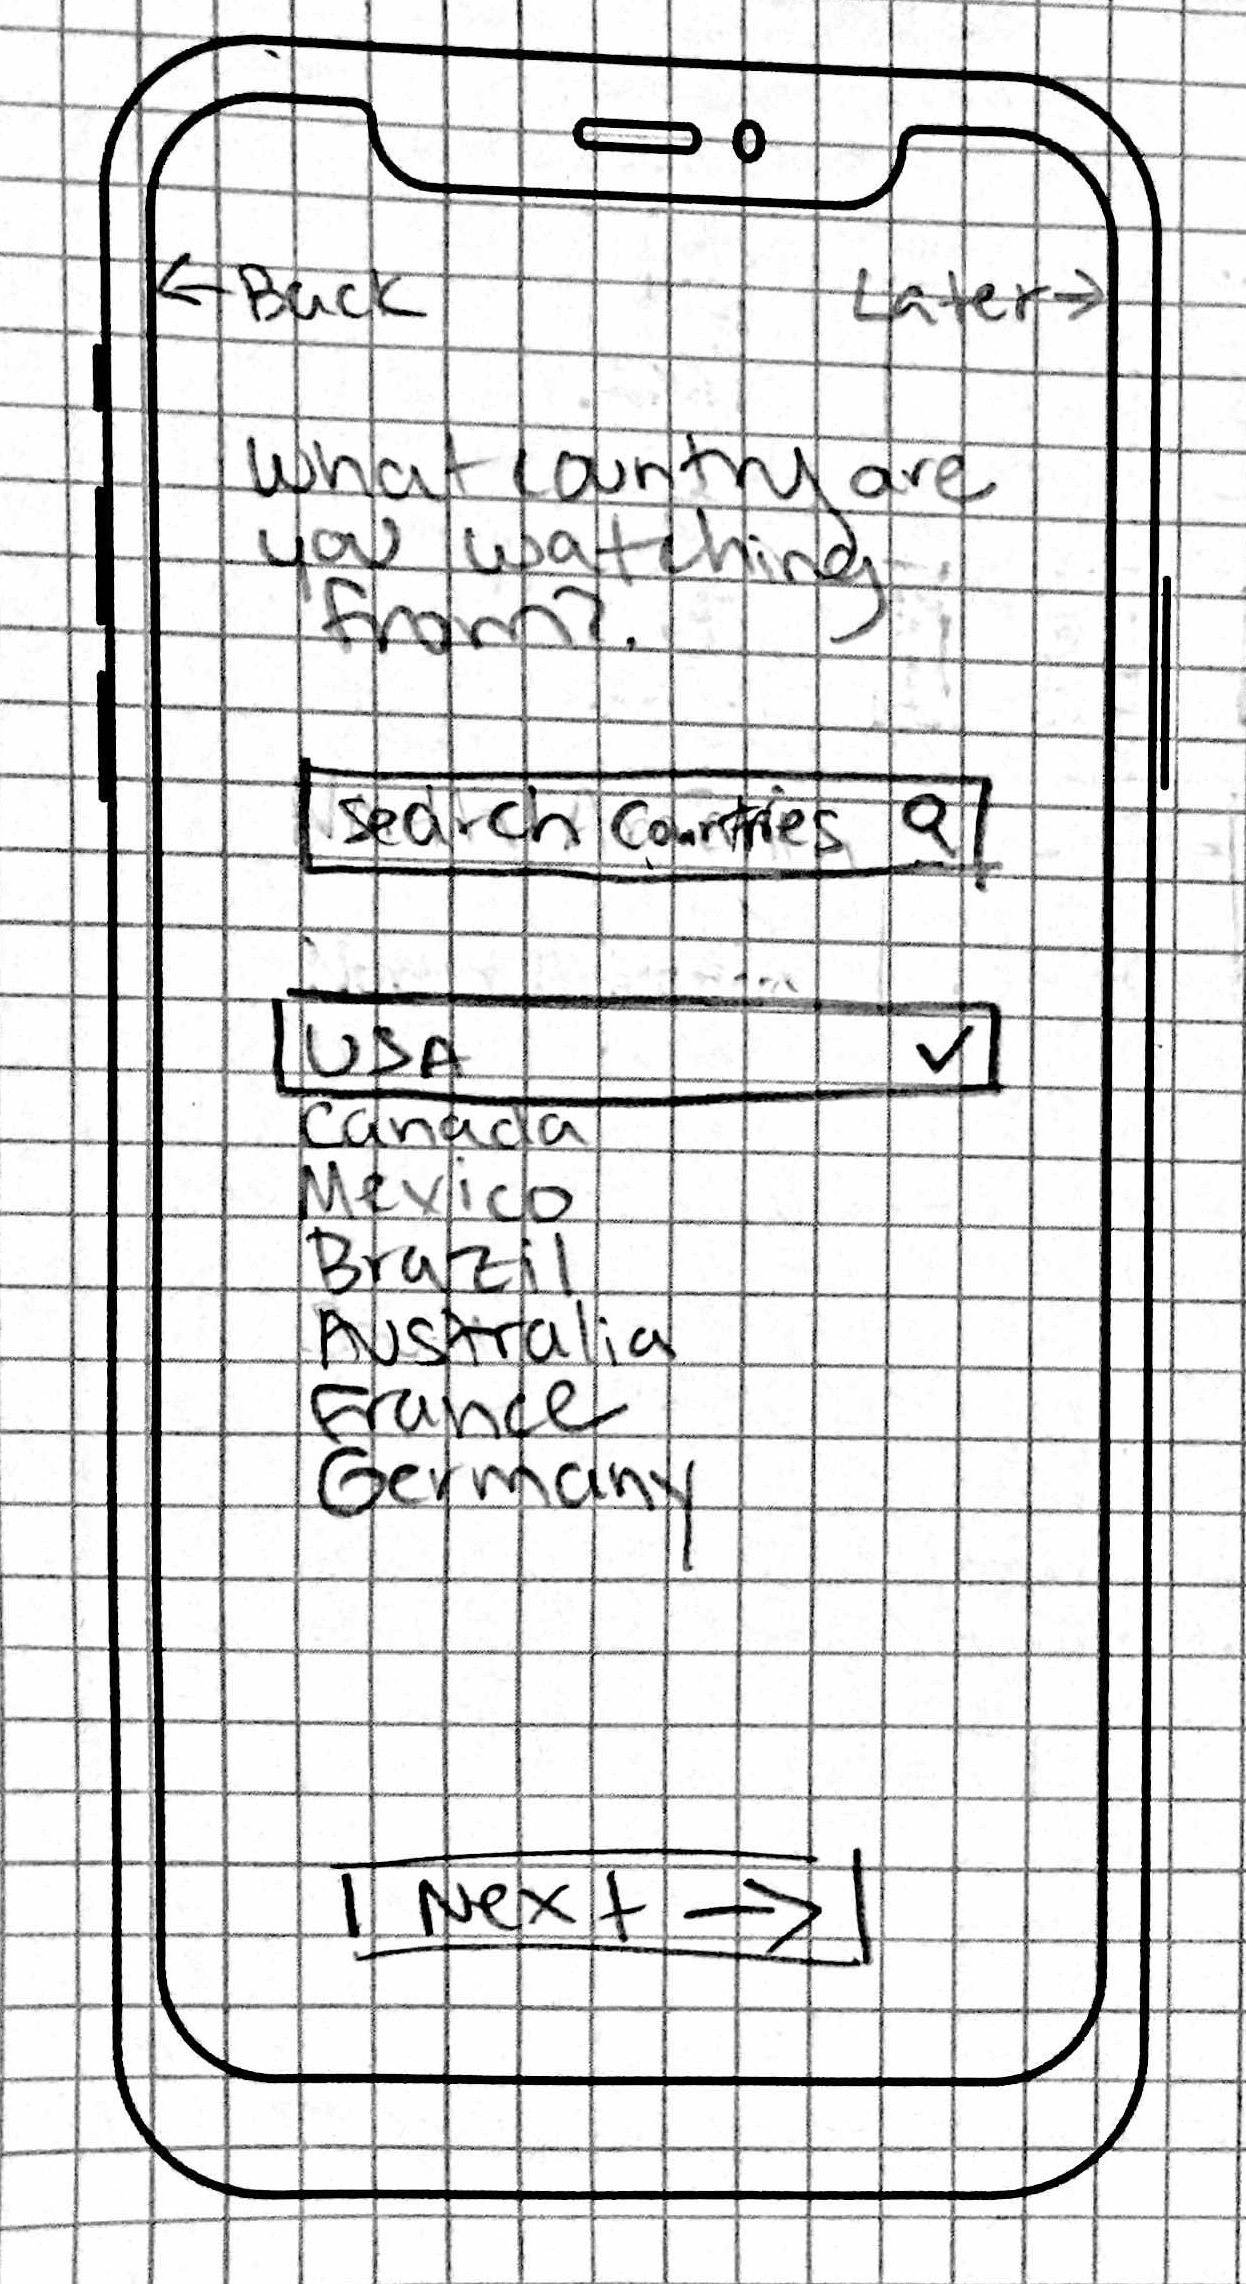 ← Back Later →
What country are
you watching
from?.
search countries
USA ✓
Canada
Mexico
Brazil
Australia
France
Germany
Next →